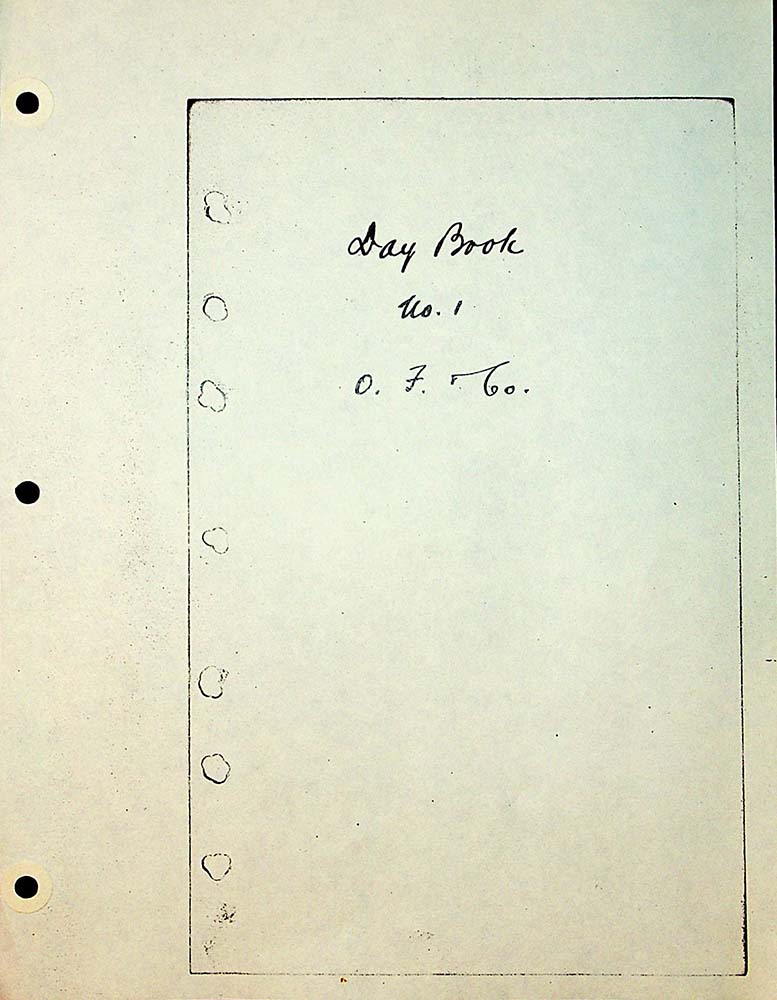 Day Book
No. 1
O. F. & Co.